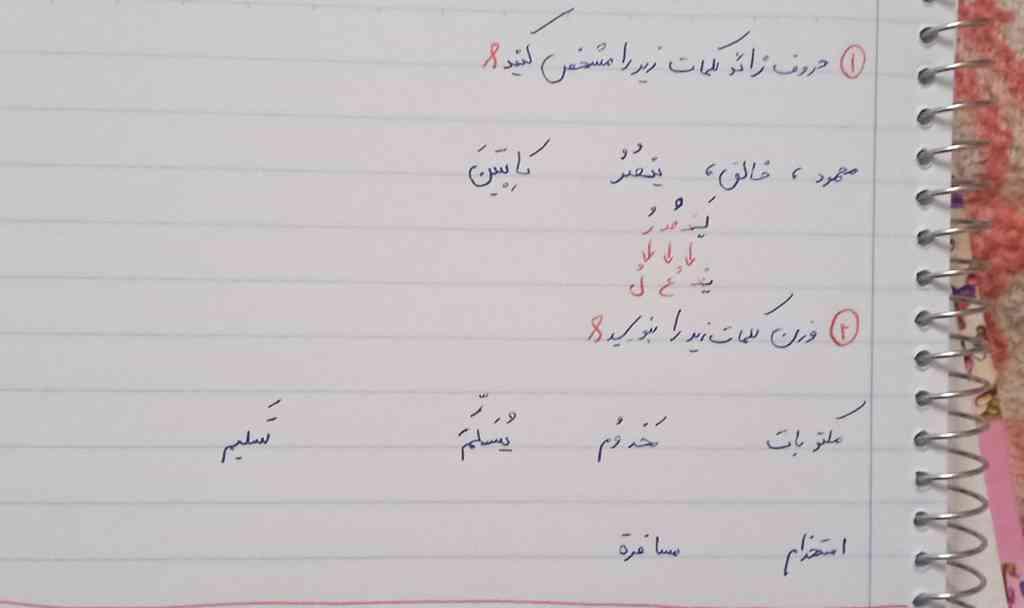 ① حروف زائد کلمات زیر را مشخص کنید:
محمود ، خالق ، یَنصُرُ کاتِبَینَ
یَنصُرُ
↓ ↓ ↓
یَفعُلُ
② وزن کلمات زیر را بنویسید:
مکتوبات خَدوُم یُسَلَّمَ تَسلیم
استخدام مسافرة